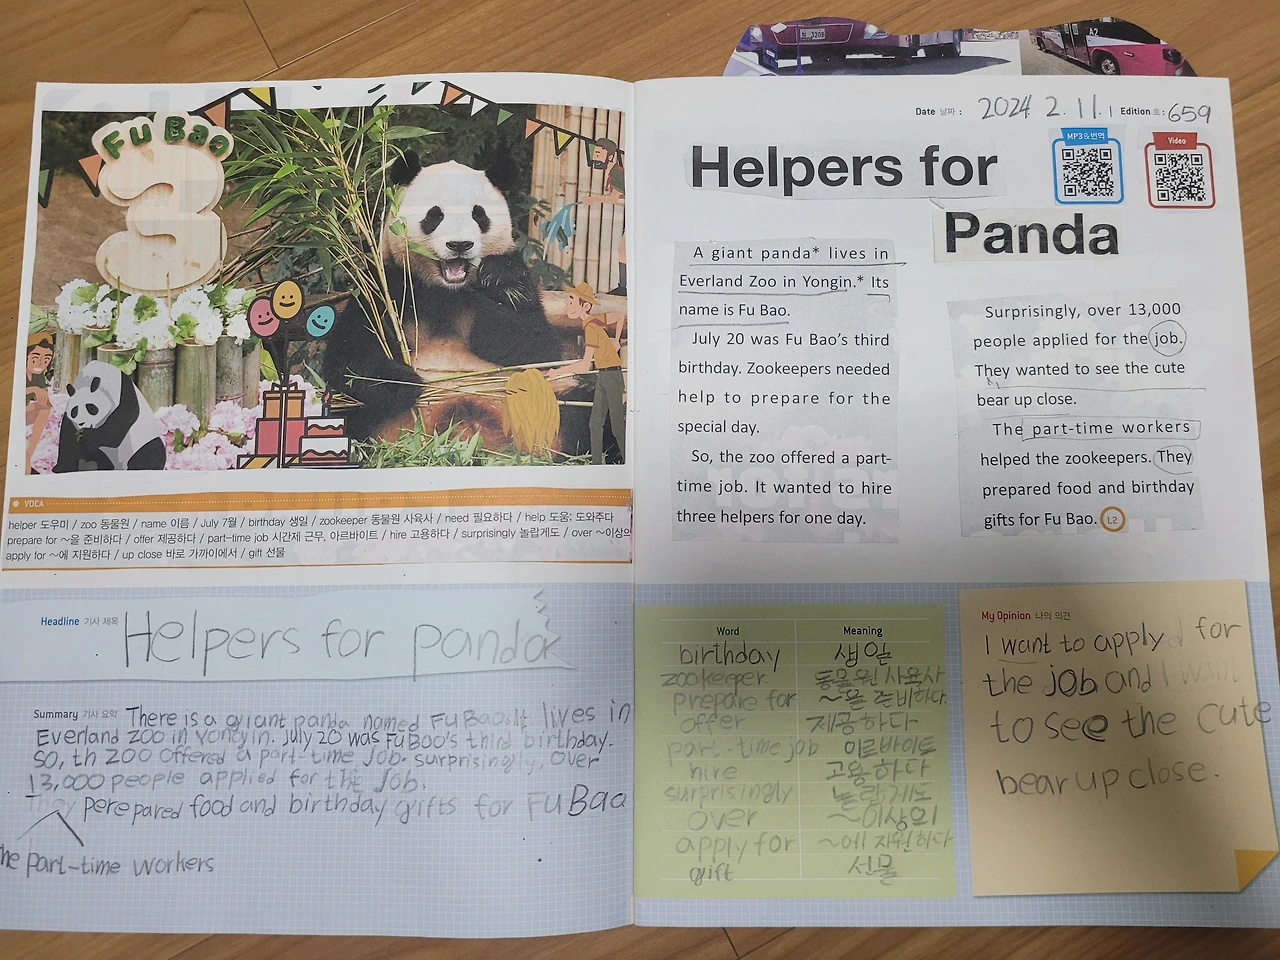 3208
A2
Fu Bao
3
VOCA
helper 도우미 / zoo 동물원 / name 이름 / July 7월 / birthday 생일 / zookeeper 동물원 사육사 / need 필요하다 / help 도움; 도와주다
prepare for ~을 준비하다 / offer 제공하다 / part-time job 시간제 근무, 아르바이트 / hire 고용하다 / surprisingly 놀랍게도 / over ~이상의
apply for ~에 지원하다 / up close 바로 가까이에서 / gift 선물
Headline 기사 제목
Helpers for panda
Summary 기사 요약
There is a giant panda named Fu Bao. It lives in
Everland Zoo in Yongin. July 20 was Fu Bao's third birthday.
So, th zoo offered a part-time job. surprisingly, over
13,000 people applied for the job.
They perepared food and birthday gifts for Fu Bao
the part-time workers
Date 날짜 : 2024. 2. 11. Edition 호: 659
MP3&번역
Video
Helpers for
Panda
A giant panda* lives in
Everland Zoo in Yongin.* Its
name is Fu Bao.
July 20 was Fu Bao's third
birthday. Zookeepers needed
help to prepare for the
special day.
So, the zoo offered a part-
time job. It wanted to hire
three helpers for one day.
Surprisingly, over 13,000
people applied for the job.
They wanted to see the cute
bear up close.
The part-time workers
helped the zookeepers. They
prepared food and birthday
gifts for Fu Bao. L2
Word Meaning
birthday 생일
zookeeper 동물원 사육사
prepare for ~을 준비하다.
offer 제공하다
part-time job 아르바이트
hire 고용하다
surprisingly 놀랍게도
over ~이상의
apply for ~에 지원하다
gift 선물
My Opinion 나의 의견
I want to apply for
the job and I want
to see the cute
bear up close.